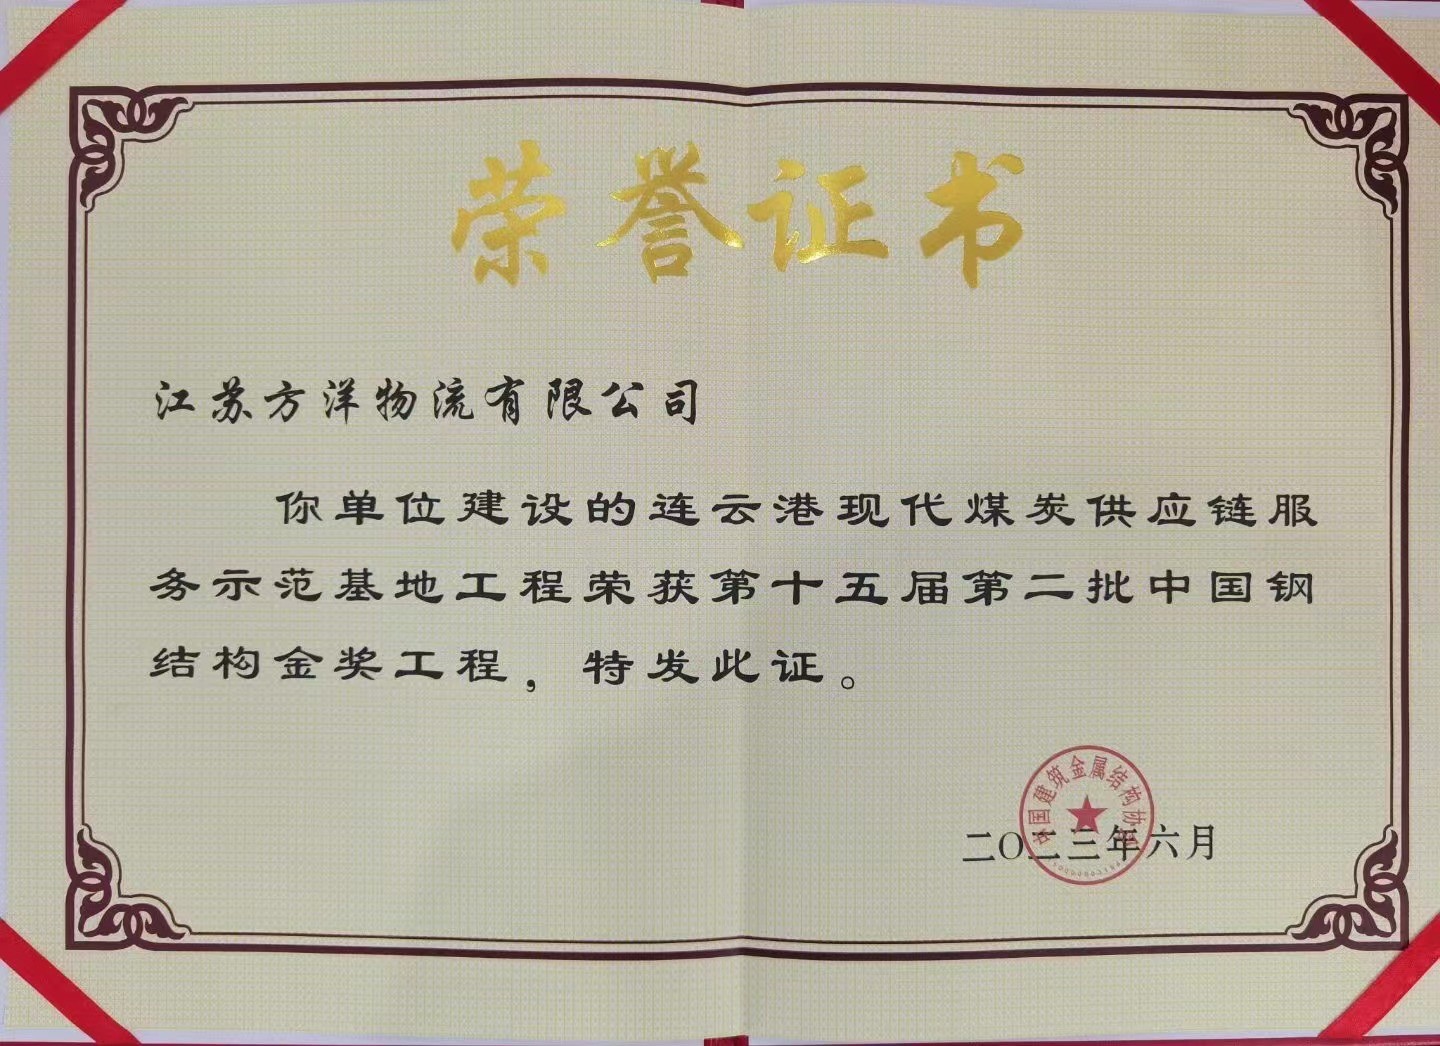 荣誉证书
江苏方洋物流有限公司
你单位建设的连云港现代煤炭供应链服
务示范基地工程荣获第十五届第二批中国钢
结构金奖工程，特发此证。
中国建筑金属结构协会
二〇二三年六月